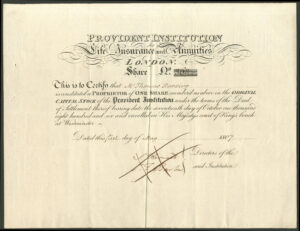 PROVIDENT INSTITUTION
for
Life Insurance and Annuities
LONDON.
Share No.
This is to Certify that Mr. Thomas
is constituted a PROPRIETOR of ONE SHARE numbered as above in the ORIGINAL
CAPITAL STOCK of the Provident Institution under the terms of the Deed
of Settlement thereof bearing date the seventeenth day of October one thousand
eight hundred and six and enrolled in His Majesty's court of Kings bench
at Westminster.
Dated this first day of May 1807.
Directors of the
said Institution